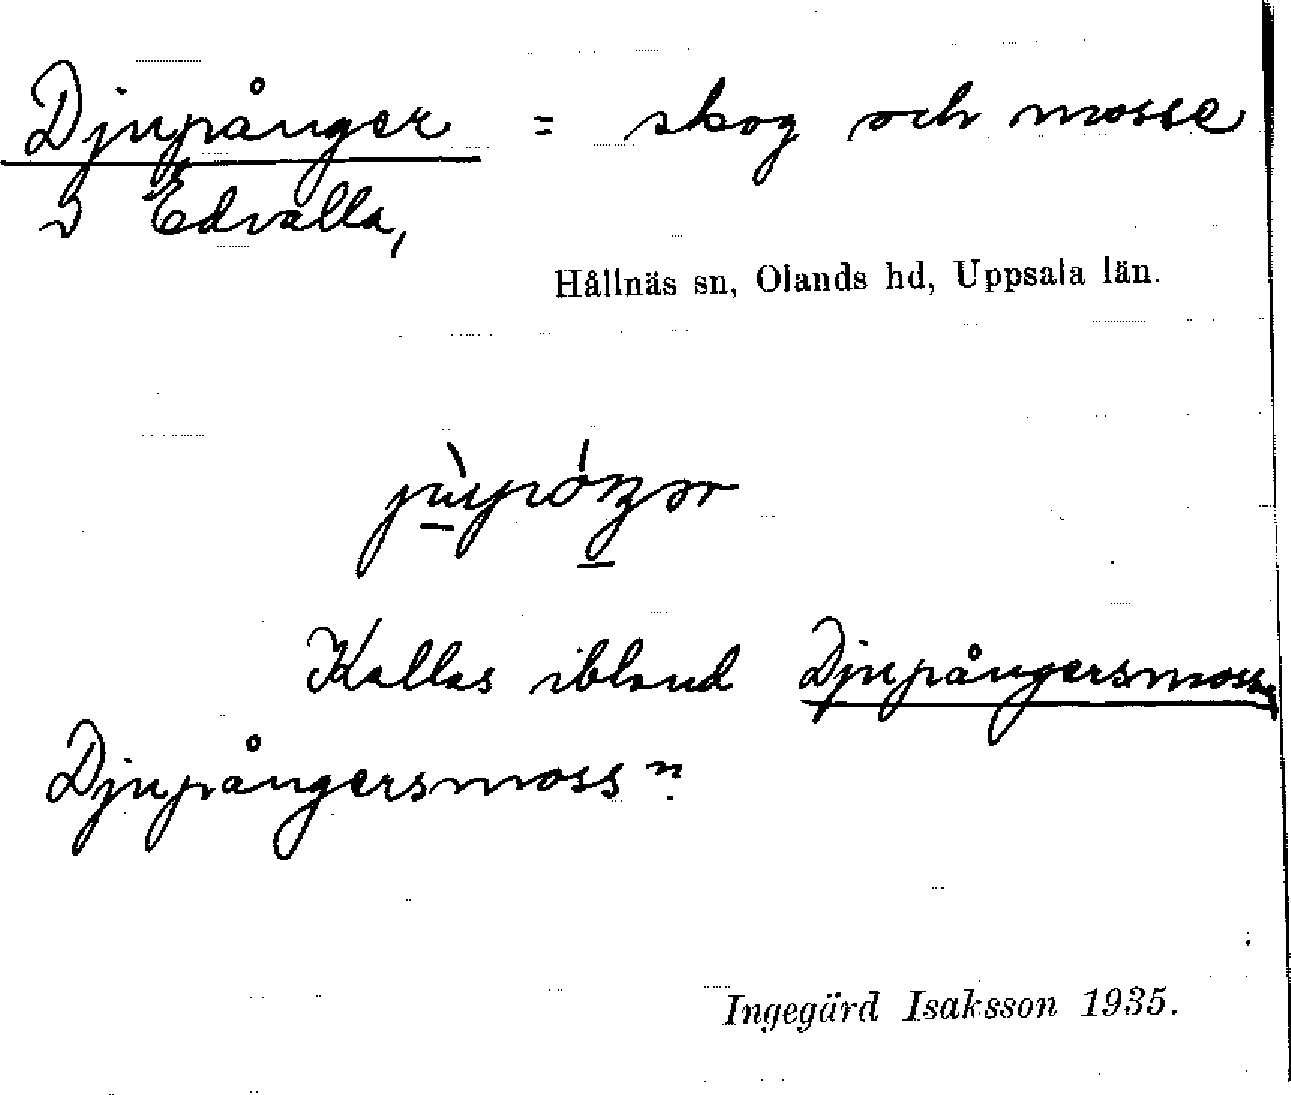 Djupånger = skog och mosse
Edvalla,
Hållnäs sn, Olands hd, Uppsala län.
Kallas ibland Djupångersmossen
Djupångersmoss
Ingegärd Isaksson 1935.